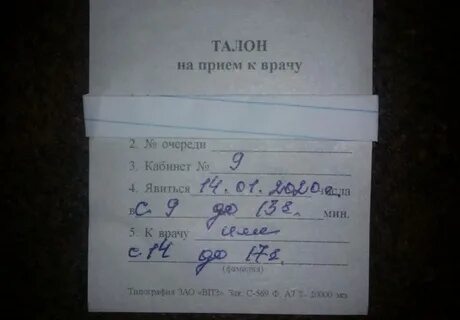 ТАЛОН
на прием к врачу
2. № очереди
3. Кабинет № 9
4. Явиться 14.01.2020г. числа
в с 9 до 13г. мин.
5. К врачу или
с 14 до 17г.
(фамилия)
Типография ЗАО «ВПЗ» Зак. С-569 Ф. А7 Т. 20000